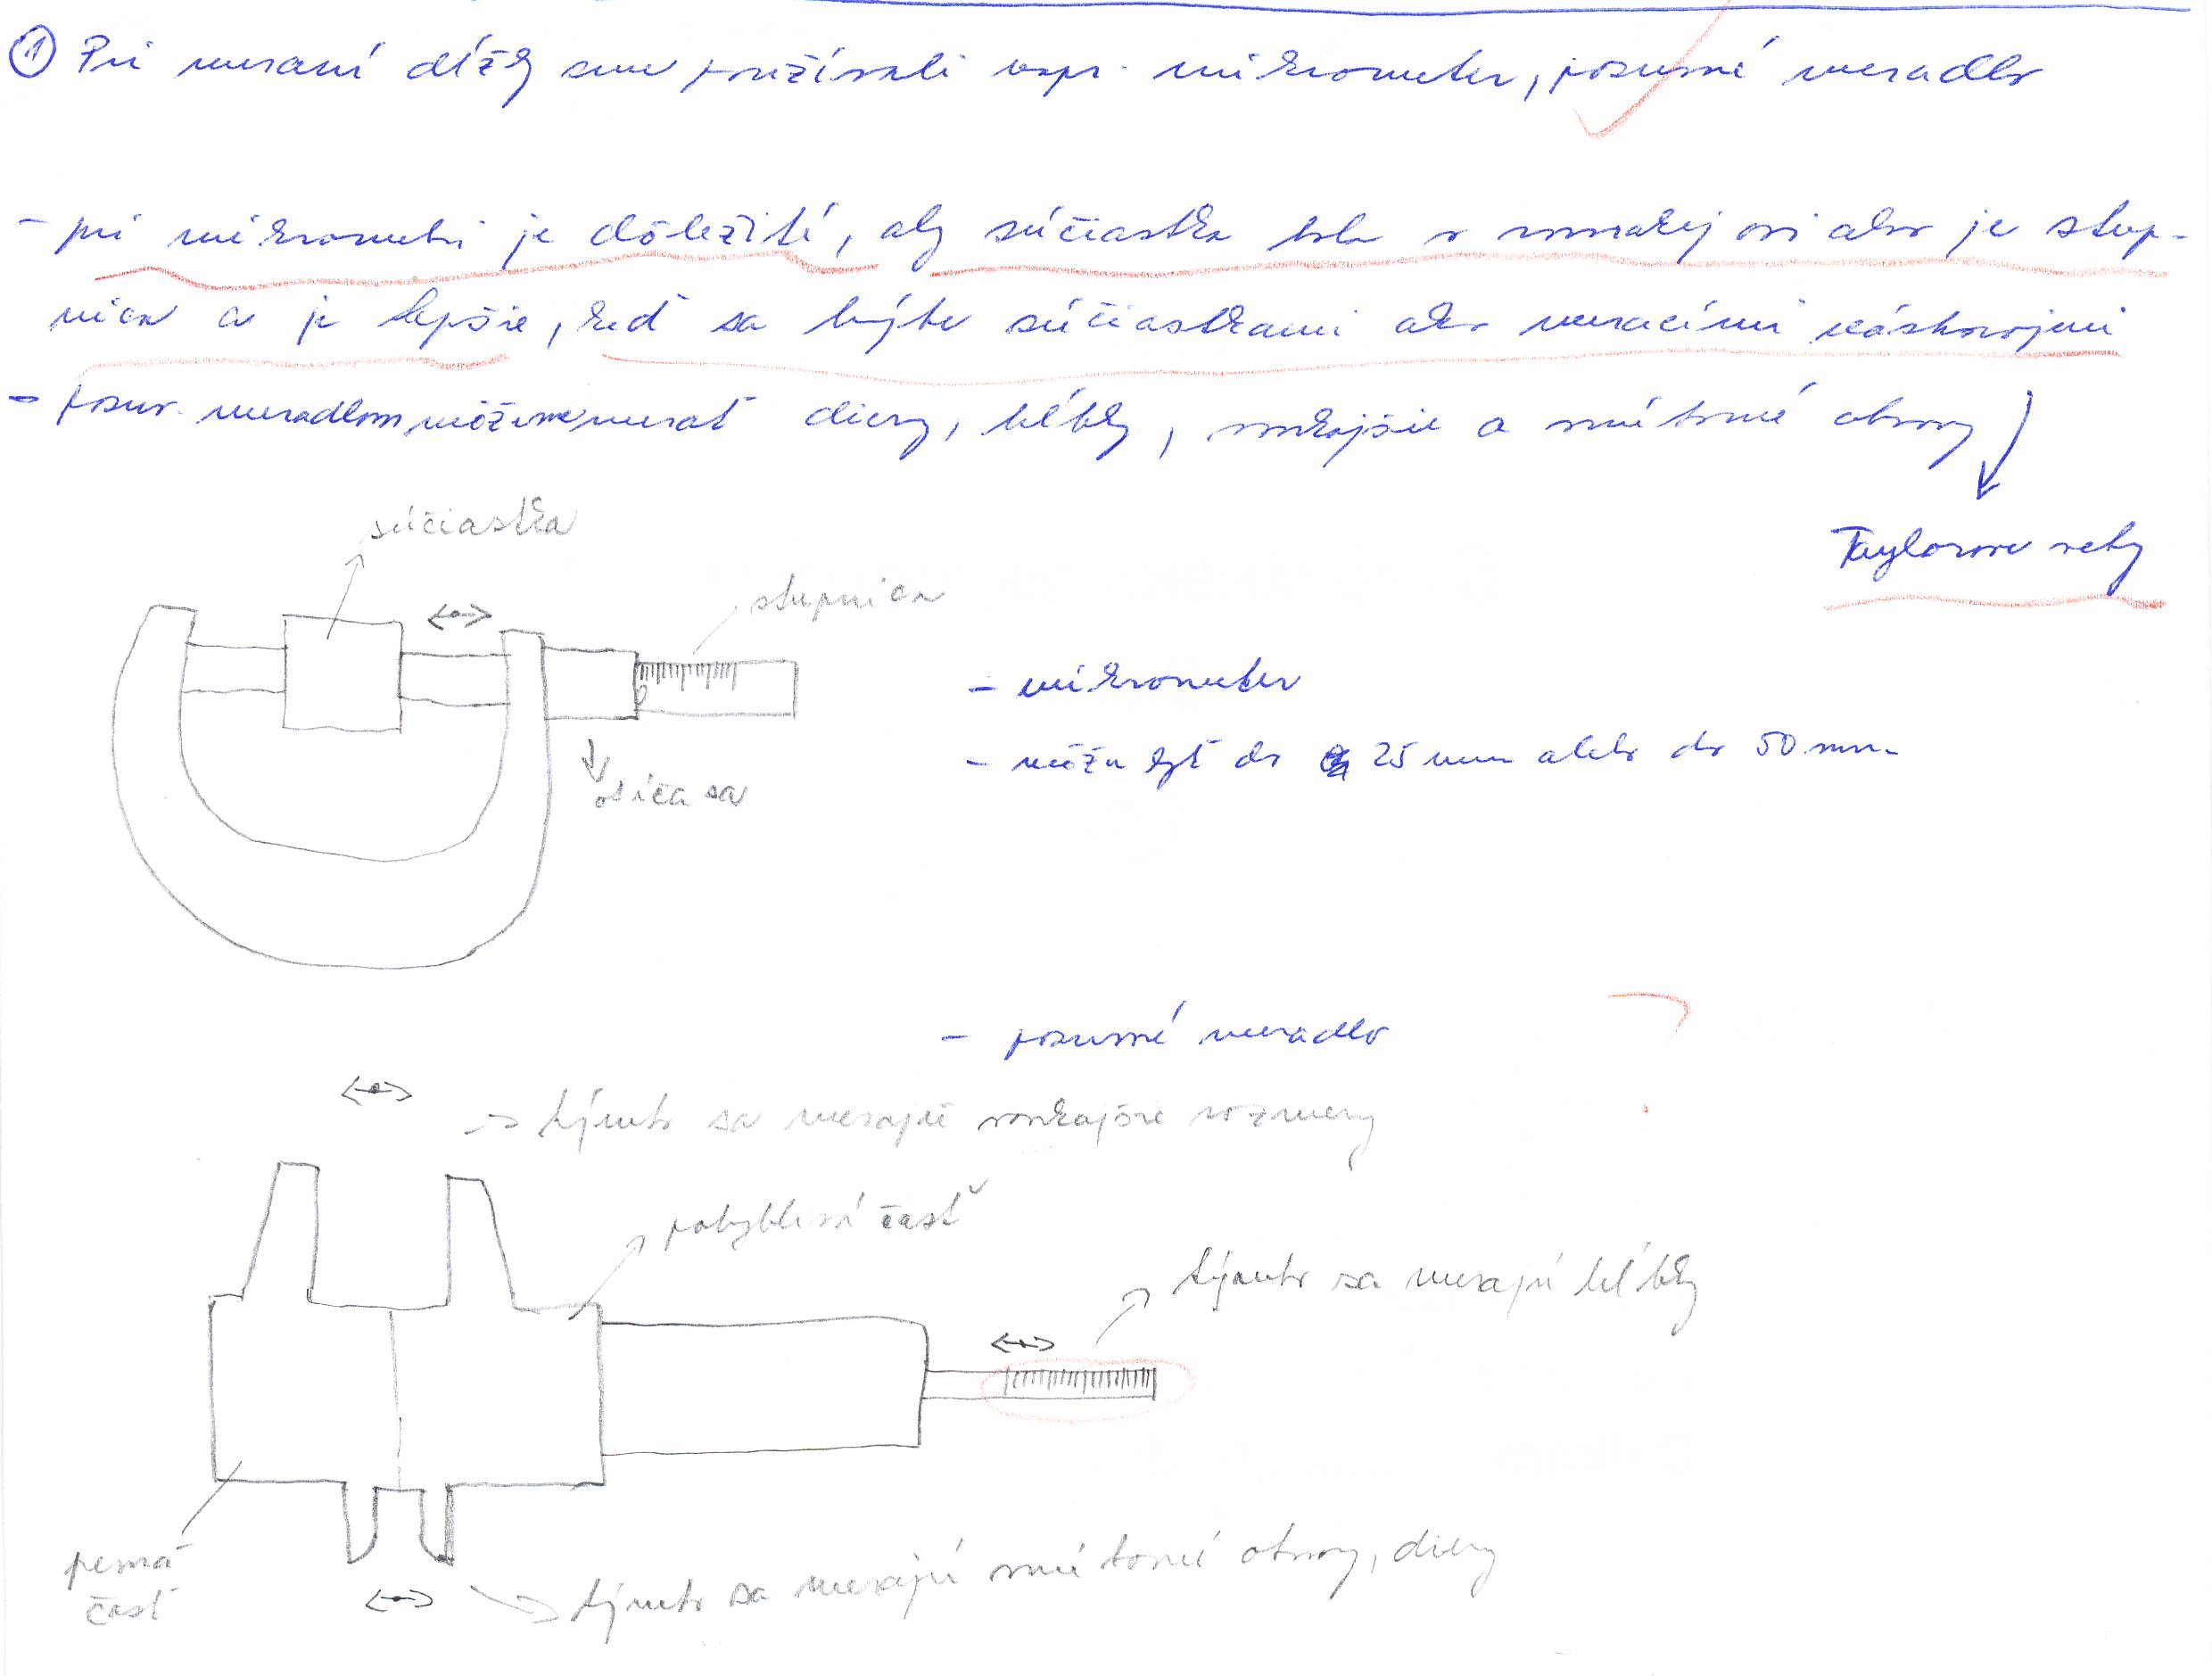 ① Pri meraní dĺžky sme používali napr. mikrometer, posuvné meradlo
- pri mikrometri je dôležité, aby súčiastka bola v rovnakej osi ako je stup-
nica a je lepšie, keď sa hýbe súčiastkami ako meracími nástrojmi
- posuv. meradlom môžeme merať diery, hĺbky, vonkajšie a vnútorné otvory
Taylorove vety
súčiastka
stupnica
- mikrometer
- môžu byť do 25 mm alebo do 50 mm
otáča sa
- posuvné meradlo
týmto sa merajú vonkajšie rozmery
pohyblivá časť
týmto sa merajú hĺbky
pevná
časť
týmto sa merajú vnútorné otvory, diery